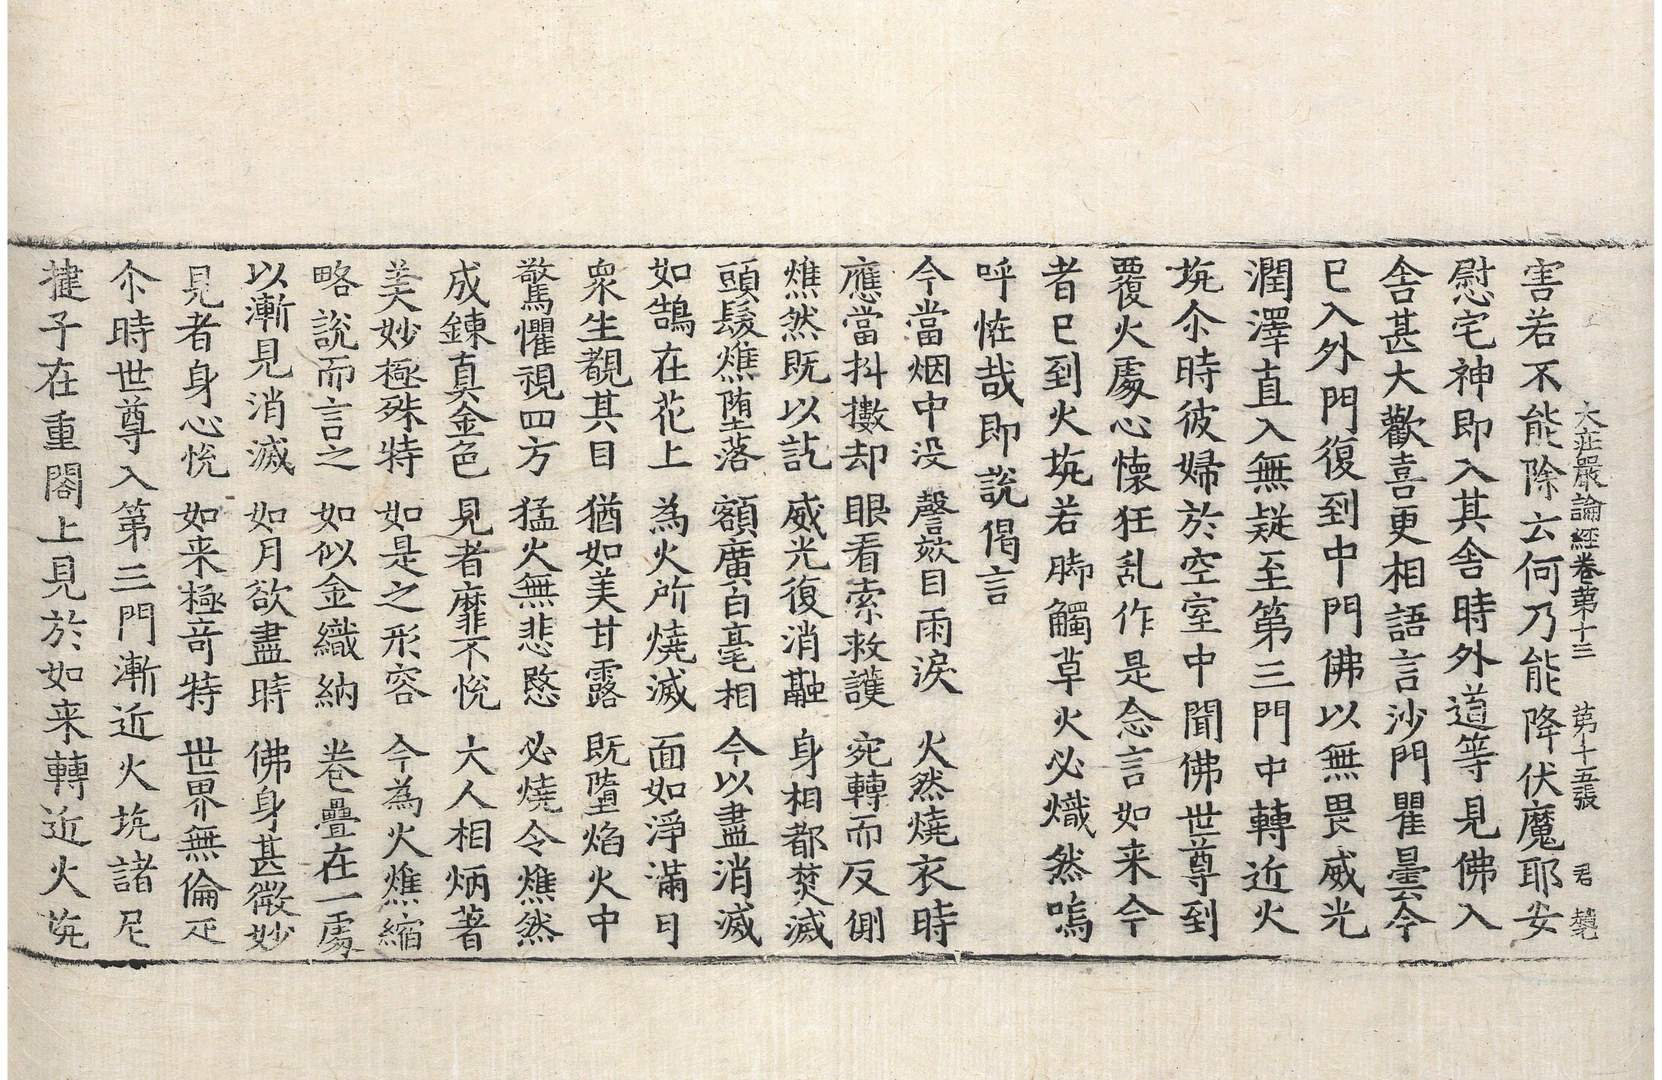 大莊嚴論經卷第十三 第十五張 君
害若不能除云何乃能降伏魔耶安
慰宅神即入其舍時外道等見佛入
舍甚大歡喜更相語言沙門瞿曇今
已入外門復到中門佛以無畏威光
潤澤直入無疑至第三門中轉近火
坑尒時彼婦於空室中聞佛世尊到
覆火處心懷狂乱作是念言如来今
者已到火坑若脚觸草火必熾然嗚
呼恠哉即說偈言
今當烟中没 謦欬目雨淚 火然燒衣時
應當抖擻却 眼看索救護 宛轉而反側
燋然既以訖 威光復消融 身相都焚滅
頭髮燋墮落 額廣白毫相 今以盡消滅
如鵠在花上 為火所燒滅 面如淨滿月
衆生覩其目 猶如美甘露 既墮焰火中
驚懼視四方 猛火無悲愍 必燒令燋然
成鍊真金色 見者靡不悅 大人相炳著
美妙極殊特 如是之形容 今為火燋縮
略說而言之 如似金織納 卷疊在一處
以漸見消滅 如月欲盡時 佛身甚微妙
見者身心悅 如来極竒特 世界無倫疋
尒時世尊入第三門漸近火坑諸尼
揵子在重閣上見於如来轉近火坑